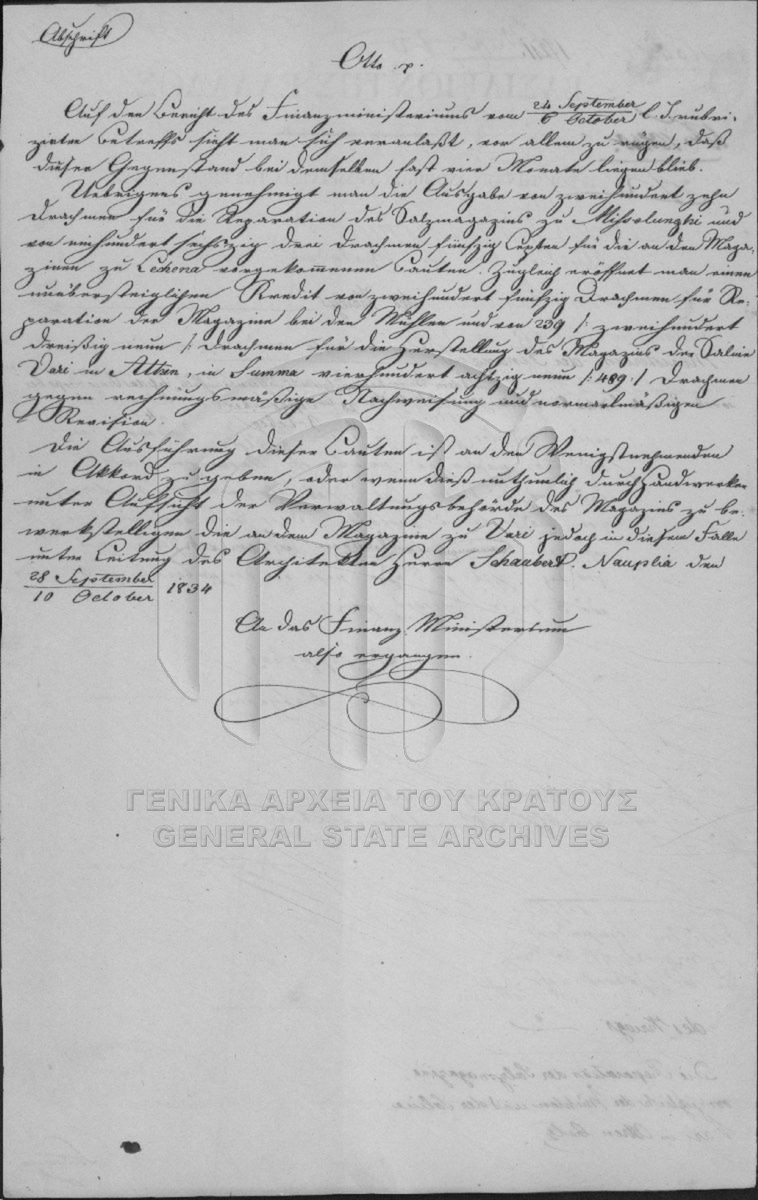 Abschrift
Otto p.
Auf den Bericht des Finanzministeriums vom 24 September / 6 October l. J. rubri-
zirten Betreffs sieht man sich veranlaßt, vor allem zu rügen, daß
dieser Gegenstand bei demselben fast vier Monate liegen blieb.
Uebrigens genehmigt man die Ausgabe von zweihundert zehn
Drachmen für die Reparation des Salzmagazins zu Missolunghi und
von einhundert sechszig drei Drachmen fünfzig Lepten für die an den Maga-
zinen zu Lechena vorgekommenen Bauten. Zugleich eröffnet man einen
unübersteiglichen Kredit von zweihundert fünfzig Drachmen für Re-
paration der Magazine bei den Mühlen und von 239 /: zweihundert
dreißig neun :/ Drachmen für die Herstellung des Magazins der Saline
Vari in Attika, in Summa vierhundert achtzig neun /: 489 :/ Drachmen
gegen rechnungsmäßige Nachweisung und normalmäßigen
Revision.
Die Ausführung dieser Bauten ist an den Wenigstnehmenden
in Akkord zu geben, oder wenn dieß unthunlich durch Handwerker
unter Aufsicht der Verwaltungsbehörde des Magazins zu be-
werkstelligen die an dem Magazine zu Vari jedoch in diesem Falle
unter Leitung des Architekten Herrn Schaubert. Nauplia den
28 September / 10 October 1834
An das Finanz Ministerium
also ergangen.
ΓΕΝΙΚΑ ΑΡΧΕΙΑ ΤΟΥ ΚΡΑΤΟΥΣ
GENERAL STATE ARCHIVES